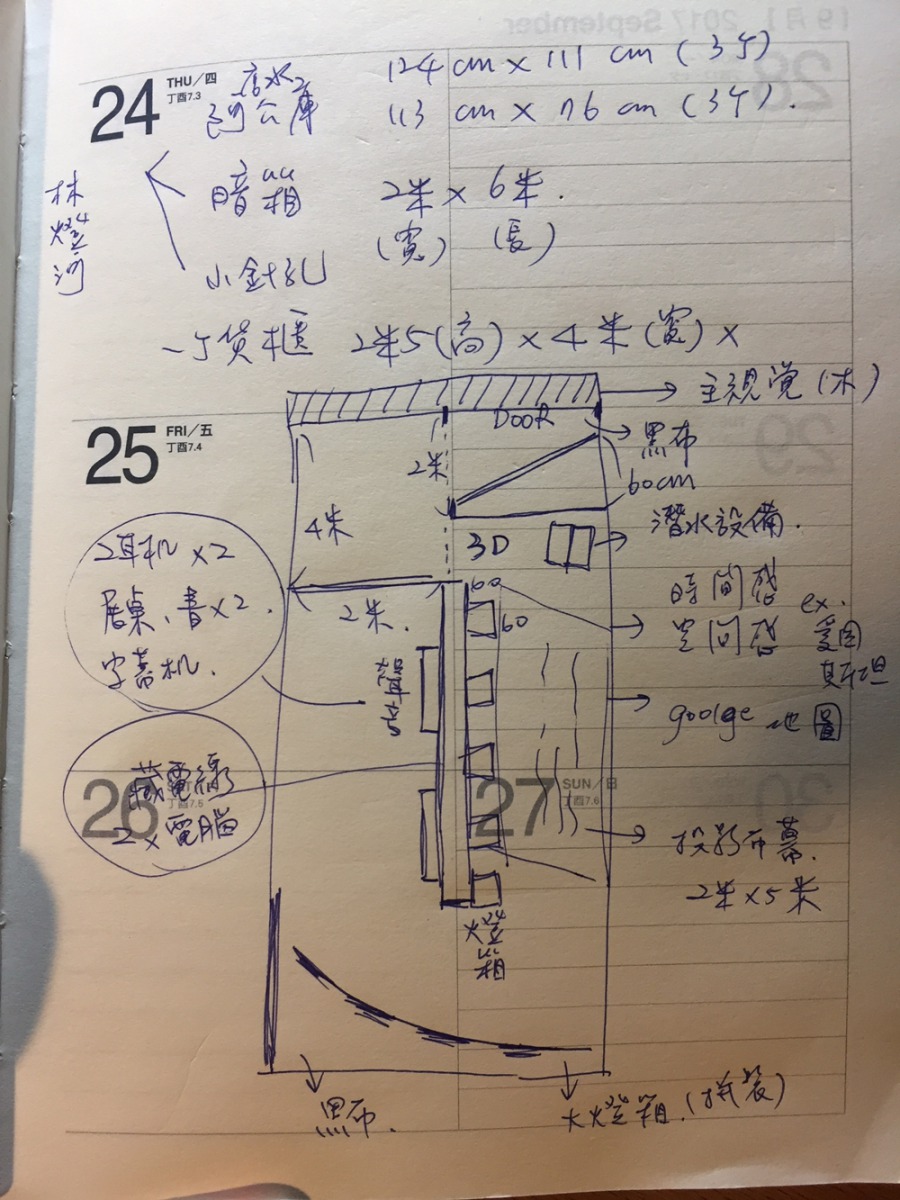 24 THU/四
丁酉7.3
124 cm × 111 cm (3个)
阿公庫
113 cm × 76 cm (3个).
林燈河
暗箱
2米 × 6米.
(寬) (長)
小針孔
一个货櫃 2米5(高) × 4米(寬) ×
主視覺(木)
25 FRI/五
丁酉7.4
DOOR
黑布
2米
60cm
4米
潛水設備.
3D
耳机 ×2
展桌、音×2.
字幕机.
2米.
60
60
時間
空間
ex.
愛因
斯坦
goolge 地圖
藏電線
2×電腦
26
丁酉7.6
27 SUN/日
丁酉7.6
投影布幕.
2米×5米
燈箱
黑布.
大燈箱.(拼裝)
[9月] 2017 September
28
29
30